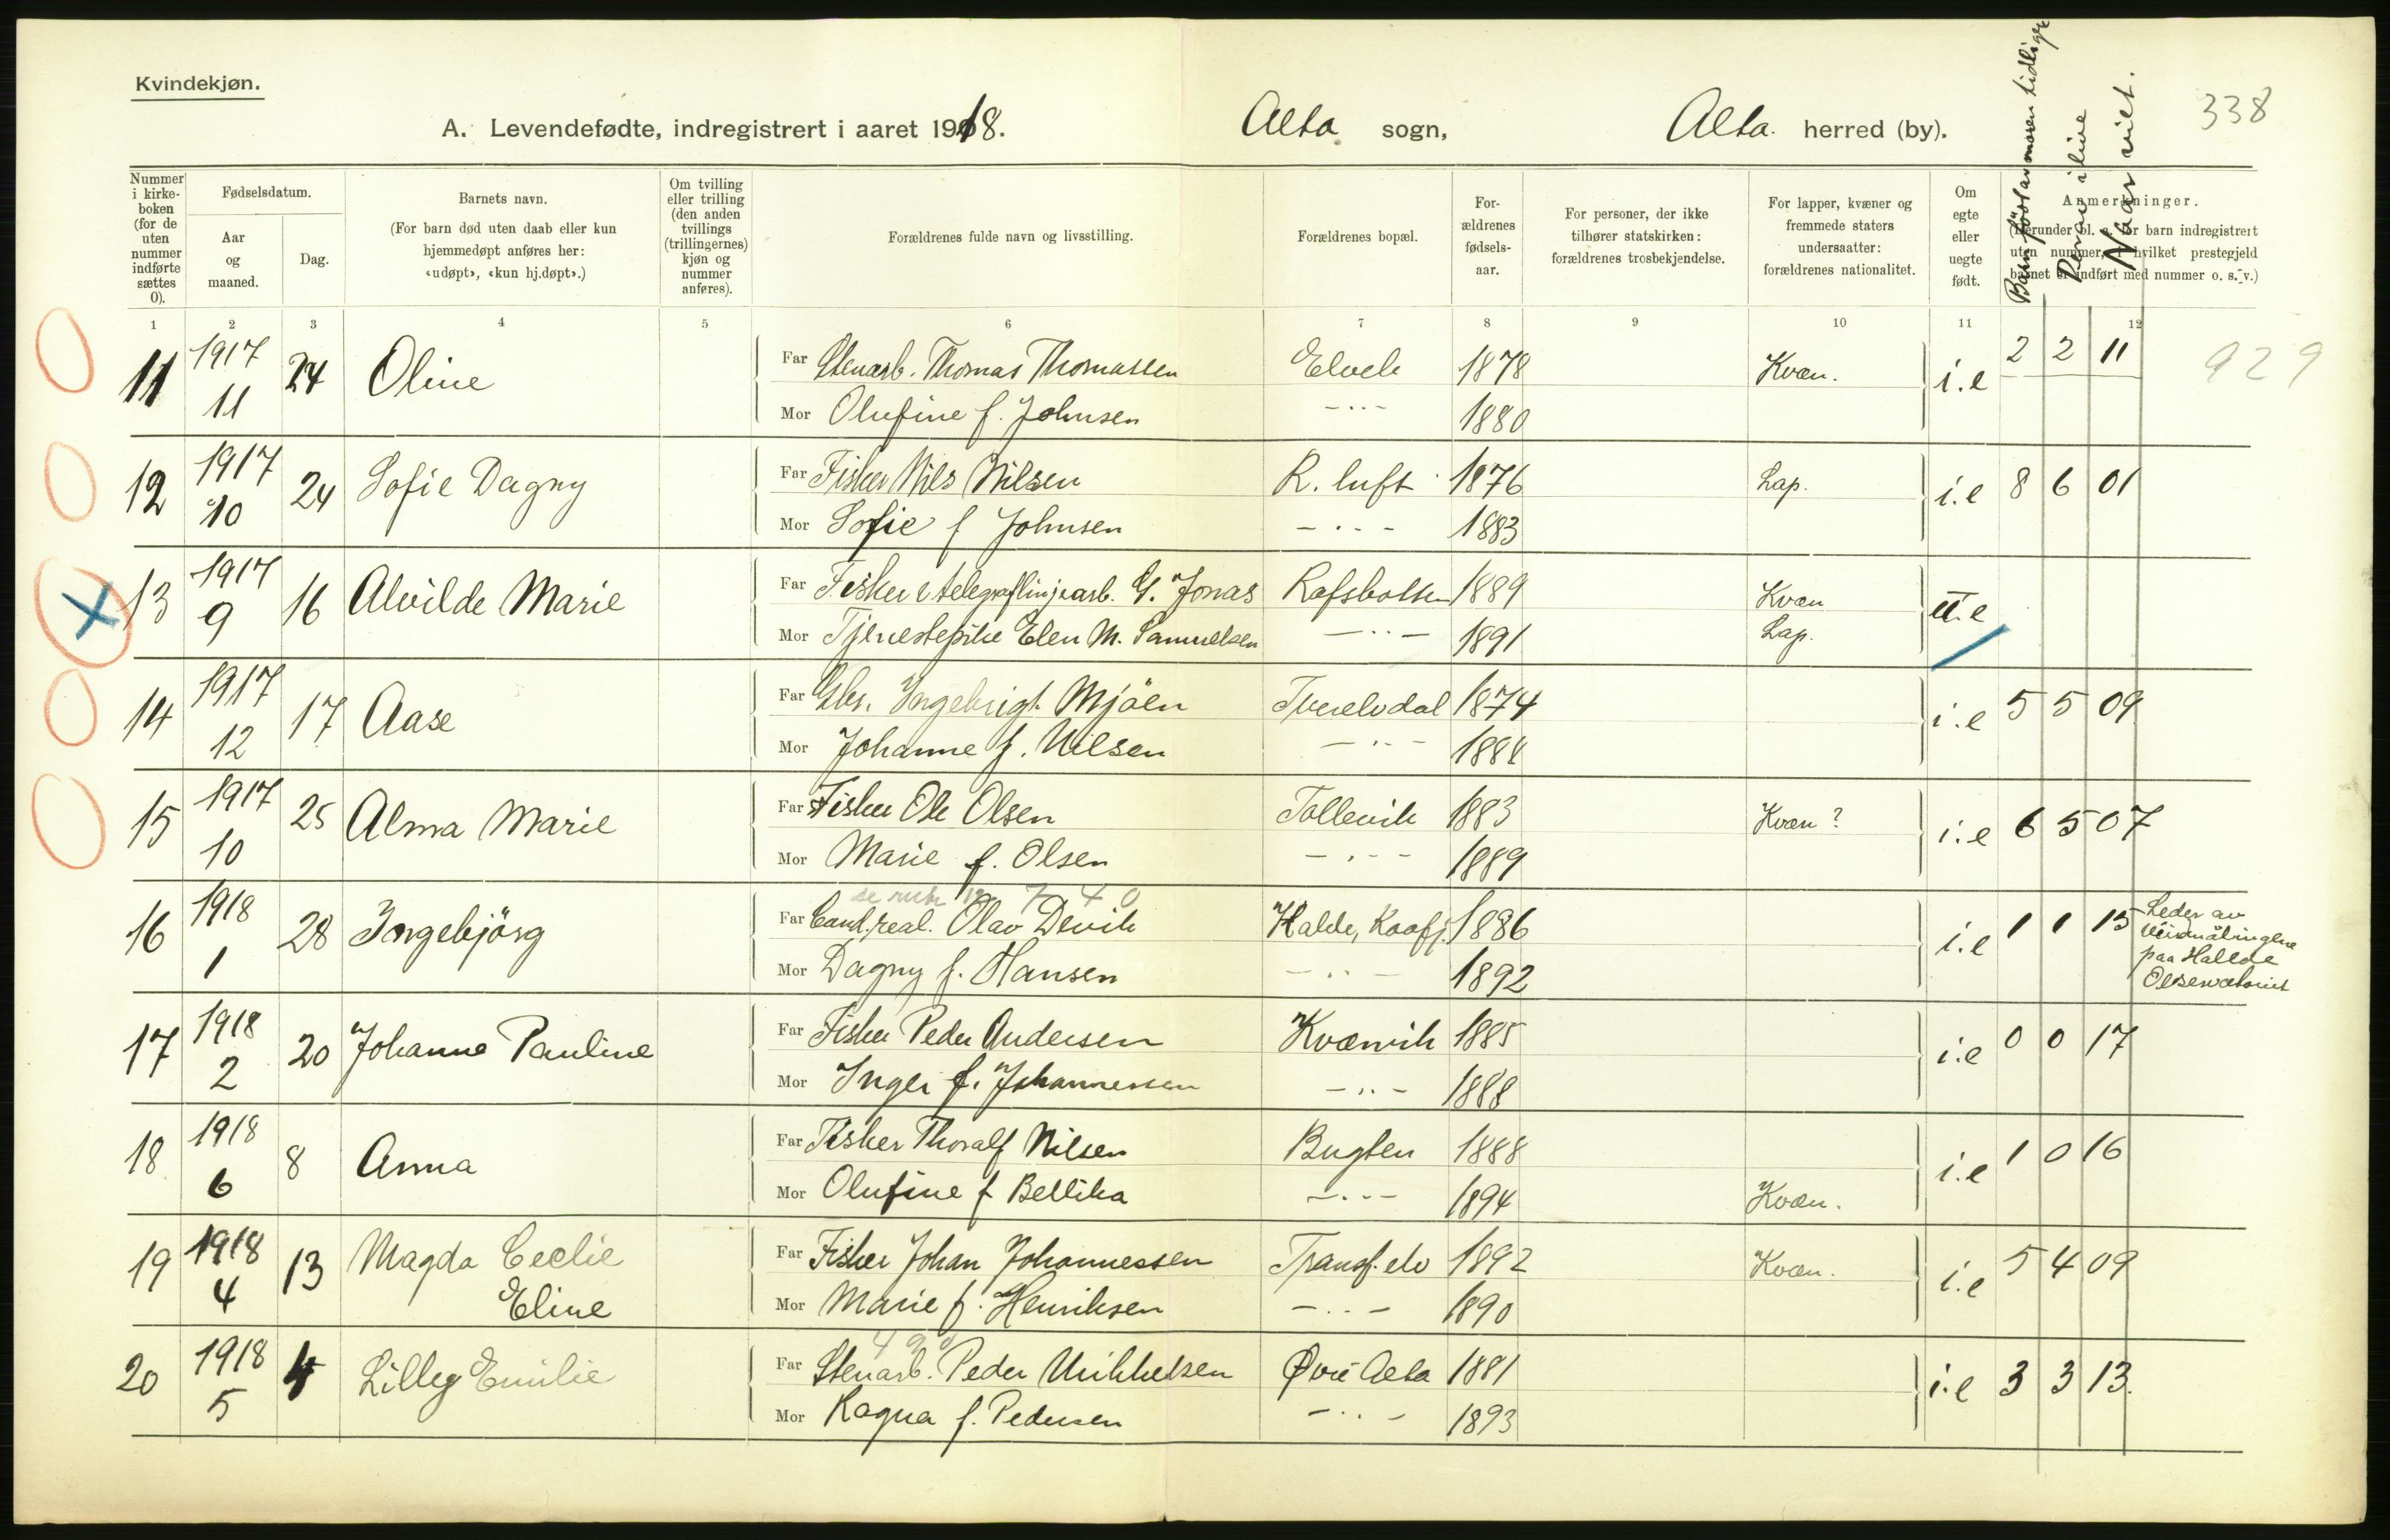 Kvindekjøn.
338
A. Levendefødte, indregistrert i aaret 1918. Alta sogn, Alta herred (by).
Barn født av moren tidligere
Derav i live
Naar viet.
Nummer i kirkeboken (for de uten nummer indførte sættes 0).
Fødselsdatum.
Aar og maaned.
Dag.
Barnets navn.
(For barn død uten daab eller kun hjemmedøpt anføres her: «udøpt», «kun hj.døpt».)
Om tvilling eller trilling (den anden tvillings (trillingernes) kjøn og nummer anføres).
Forældrenes fulde navn og livsstilling.
Forældrenes bopæl.
Forældrenes fødselsaar.
For personer, der ikke tilhører statskirken: forældrenes trosbekjendelse.
For lapper, kvæner og fremmede staters undersaatter: forældrenes nationalitet.
Om egte eller uegte født.
Anmerkninger.
(Herunder bl. a. for barn indregistrert uten nummer, i hvilket prestegjeld barnet er indført med nummer o. s. v.)
1 2 3 4 5 6 7 8 9 10 11 12
11 1917 11 24 Oline Far Stenarb. Thomas Thomassen Elveb 1878 Kvæn. i.e 2 2 11 929
Mor Olufine f. Johnsen -"- 1880
12 1917 10 24 Sofie Dagny Far Fisker Nils Nilsen R. luft 1876 Lap. i.e 8 6 01
Mor Sofie f Johnsen -"- 1883
13 1917 9 16 Alvilde Marie Far Fisker & telegraflinjearb. G. Jonas Rafsbotten 1889 Kvæn u.e
Mor Tjenestepike Elen M. Samuelsen -"- 1891 Lap.
14 1917 12 17 Aase Far Gbr. Ingebrigt Mjöen Tverelvdal 1874 i.e 5 5 09
Mor Johanne f. Nilsen -"- 1884
15 1917 10 25 Alma Marie Far Fisker Ole Olsen Tollevik 1883 Kvæn? i.e 6 5 07
Mor Marie f. Olsen -"- 1889
16 1918 1 28 Ingebjörg Far Cand. real. Olav Devik Halde, Kaafj. 1886 i.e 1 1 15 Leder av
paa Halde
Observatoriet
Mor Dagny f. Hansen -"- 1892
17 1918 2 20 Johanne Pauline Far Fisker Peder Andersen Kvænvik 1885 i.e 0 0 17
Mor Inger f. Johannessen -"- 1888
18 1918 6 8 Anna Far Fisker Thoralf Nilsen Bugten 1888 i.e 1 0 16
Mor Olufine f Bellika -"- 1894 Kvæn.
19 1918 4 13 Magda Cecelie Eline Far Fisker Johan Johannessen Transf. elv 1892 Kvæn. i.e 5 4 09
Mor Marie f. Henriksen -"- 1890
20 1918 5 4 Lilly Emilie Far Stenarb. Peder Mikkelsen Øvre Alta 1881 i.e 3 3 13.
Mor Ragna f. Pedersen -"- 1893